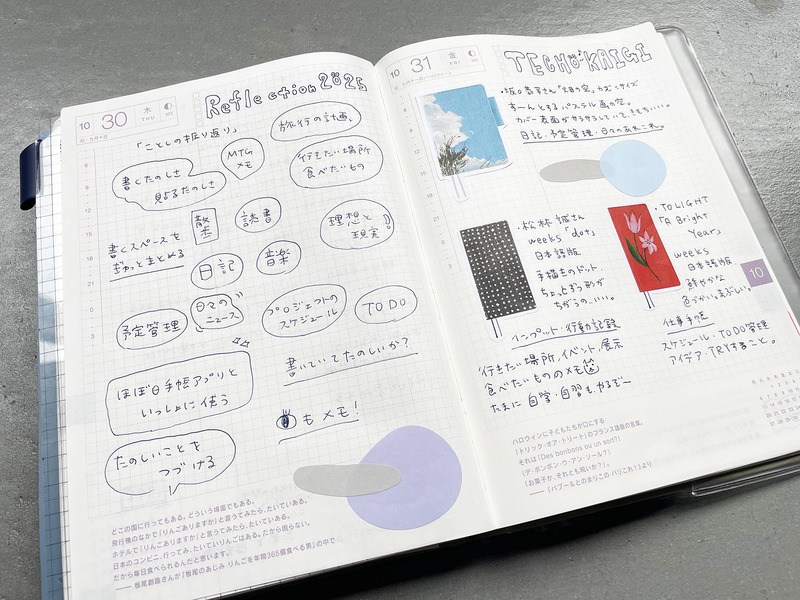 10 30 木 THU
Reflection 2025
「ことしの振り返り」
MTG
メモ
旅行の計画、
行きたい場所
食べたいもの
書くたのしさ
見返るたのしさ
散歩
読書
理想と
現実
書くスペースを
ぎゅっとまとめる
日記
音楽
予定管理
日々の
ニュース
プロジェクトの
スケジュール
TODO
書いていてたのしいか?
ほぼ日手帳アプリと
いっしょに使う
もメモ!
たのしいことを
つづける
どこの国に行ってもある。どういう場面でもある。
飛行機のなかで「りんごありますか」と言うてみたら、たいていある。
ホテルで「りんごありますか」と言うてみたら、たいていある。
日本のコンビニ、行ってみ、たいていりんごはある。だから困らない。
だから毎日食べられるんだと思います。
── 板尾創路さんが『板尾のあじみ りんごを年間365個食べる男』の中で
10 31 金 FRI
TECHO KAIGI
カバー表面がサラサラしていて、きもちいい。
日記・予定管理・日々のあれこれ。
・松林誠さん
weeks「dot」
日本語版
手描きのドット、
ちょっとずつ形が
ちがうの、いい。
・TO LIGHT
「A Bright
Year」
weeks
日本語版
鮮やかな
色づかいがまぶしい。
10
インプット・行動記録
行きたい場所、イベント、展示
食べたいもののメモ
たまに自学・自習もやるぞ〜
仕事手帳
スケジュール・TODO管理
アイデア・TRYすること。
ハロウィンに子どもたちが口にする
「トリック・オア・トリート」のフランス語版の言葉。
それは「Des bonbons ou un sort?」
(デ・ボンボン・ウ・アン・ソール?)
「お菓子か、それとも呪いか?」。
──『バブーもとのまりこの パリこれ!』より